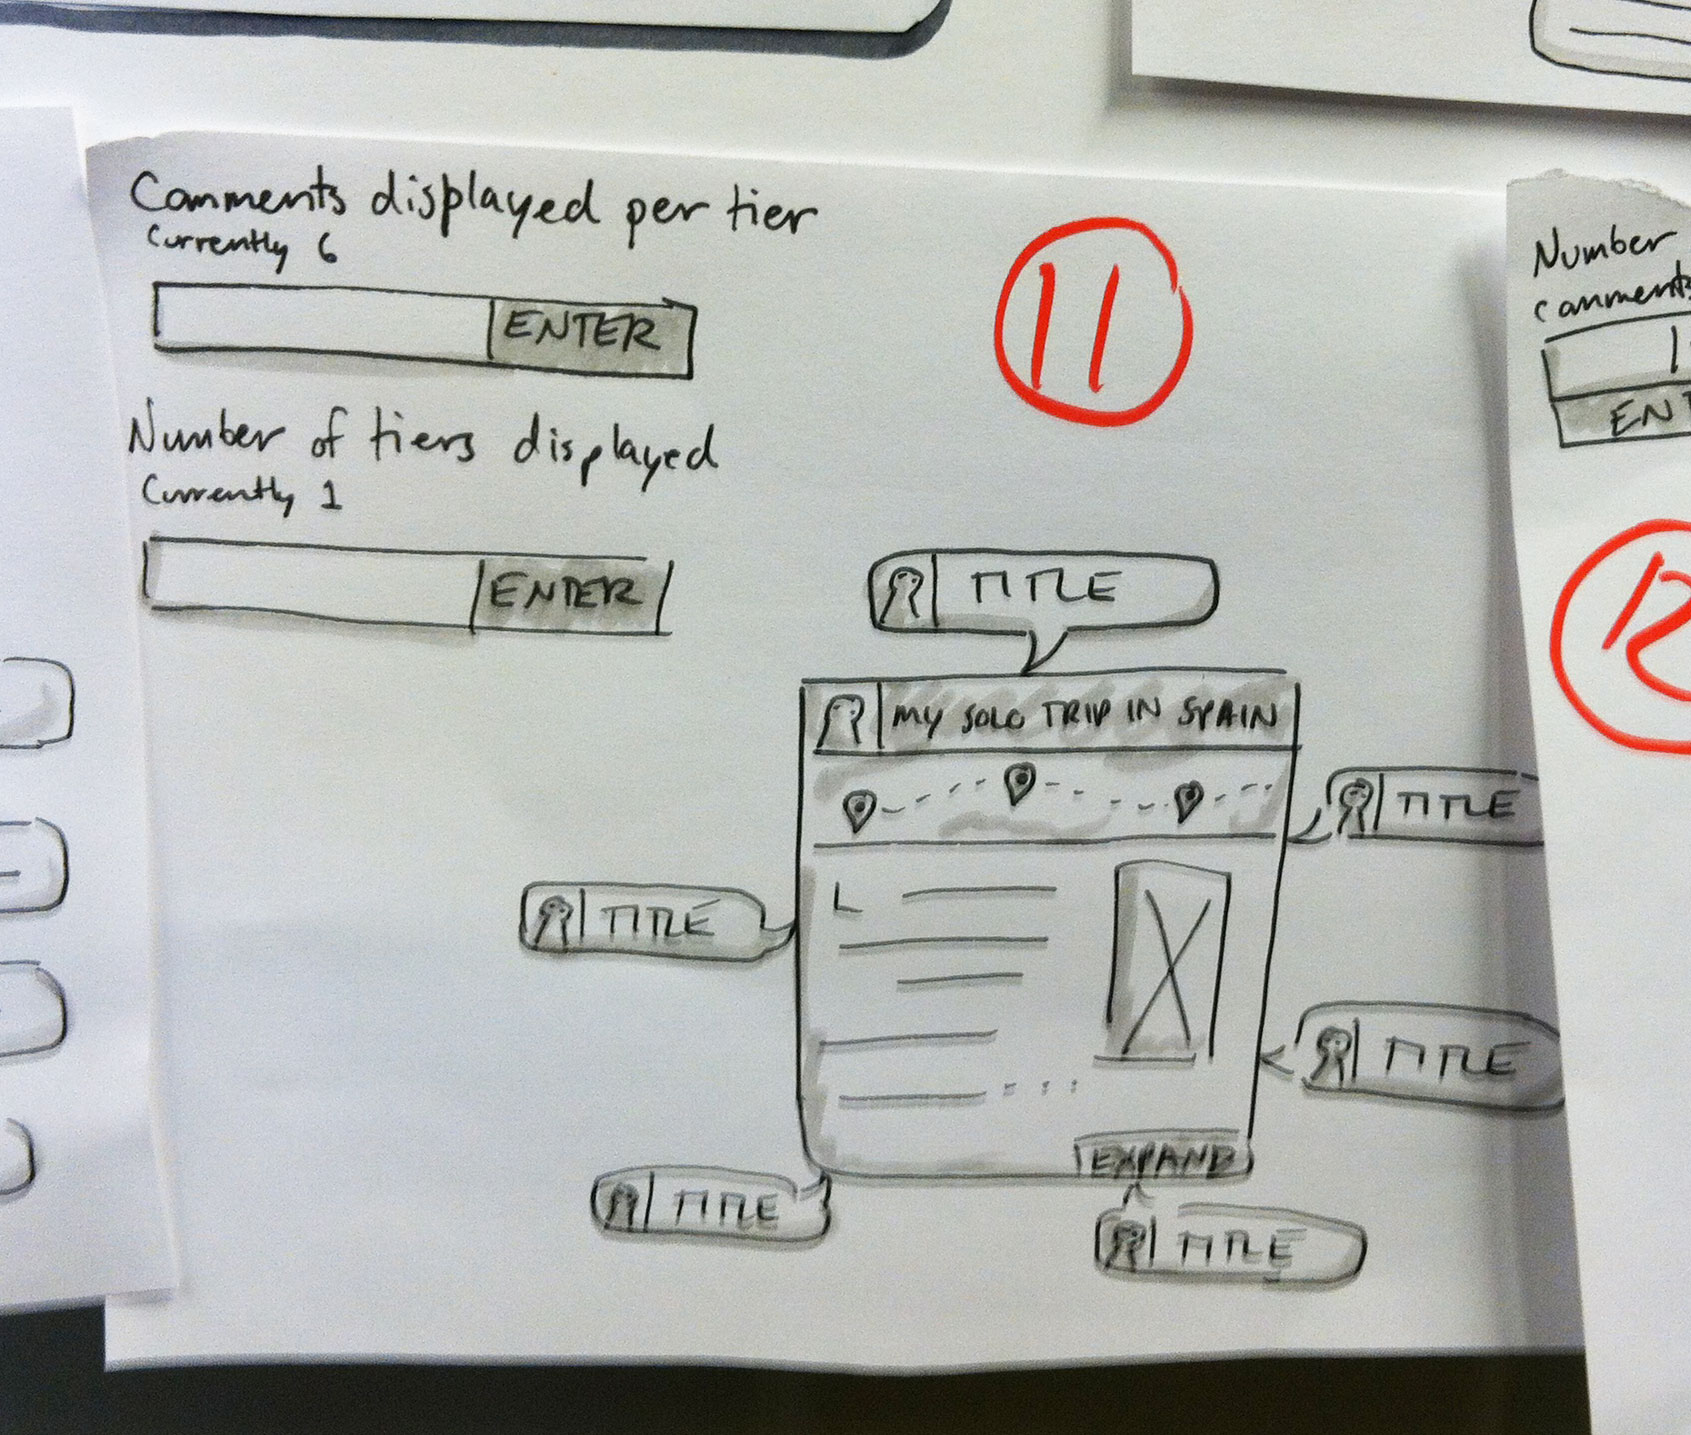 Comments displayed per tier
Currently 6
ENTER
11
Number of tiers displayed
Currently 1
ENTER
TITLE
MY SOLO TRIP IN SPAIN
TITLE
TITLE
TITLE
EXPAND
TITLE
TITLE
Number
comments
12